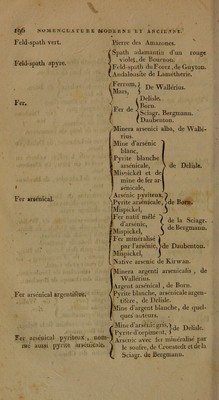 196 NOMENCLATURE MODERNE ET ANCIENNE
Feld-spath vert. Pierre des Amazones.
Feld-spath apyre. Spath adamantin d'un rouge violet, de Bournon.
Feld-spath du Forez, de Guyton.
Andalousite de Lamétherie.
Fer. Ferrum, Mars, } De Wallérius.
Fer de { Delisle.
Born.
Sciagr. Bergmann.
Daubenton.
Fer arsénical. Minera arsenici alba, de Wallérius.
Mine d'arsénic blanc,
Pyrite blanche arsénicale,
Mispickel et de mine de fer arsénicale, } de Delisle.
Arsénic pyriteux,
Pyrite arsénicale,
Mispickel, } de Born.
Fer natif mêlé d'arsénic,
Mispickel, } de la Sciagr. de Bergmann.
Fer minéralisé par l'arsénic,
Mispickel, } de Daubenton.
Native arsenic de Kirwan.
Fer arsénical argentifère. Minera argenti arsenicalis, de Wallérius.
Argent arsénical, de Born.
Pyrite blanche, arsénicale argentifère, de Delisle.
Mine d'argent blanche, de quelques auteurs.
Fer arsénical pyriteux, nommé aussi pyrite arsénicale. Mine d'arsénic gris,
Pyrite d'orpiment, } de Delisle.
Arsénic avec fer minéralisé par le soufre, de Cronstedt et de la Sciagr. de Bergmann.